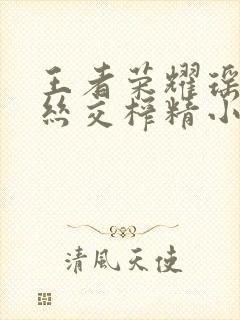 王者荣耀瑶
丝交榨精小
清風天使